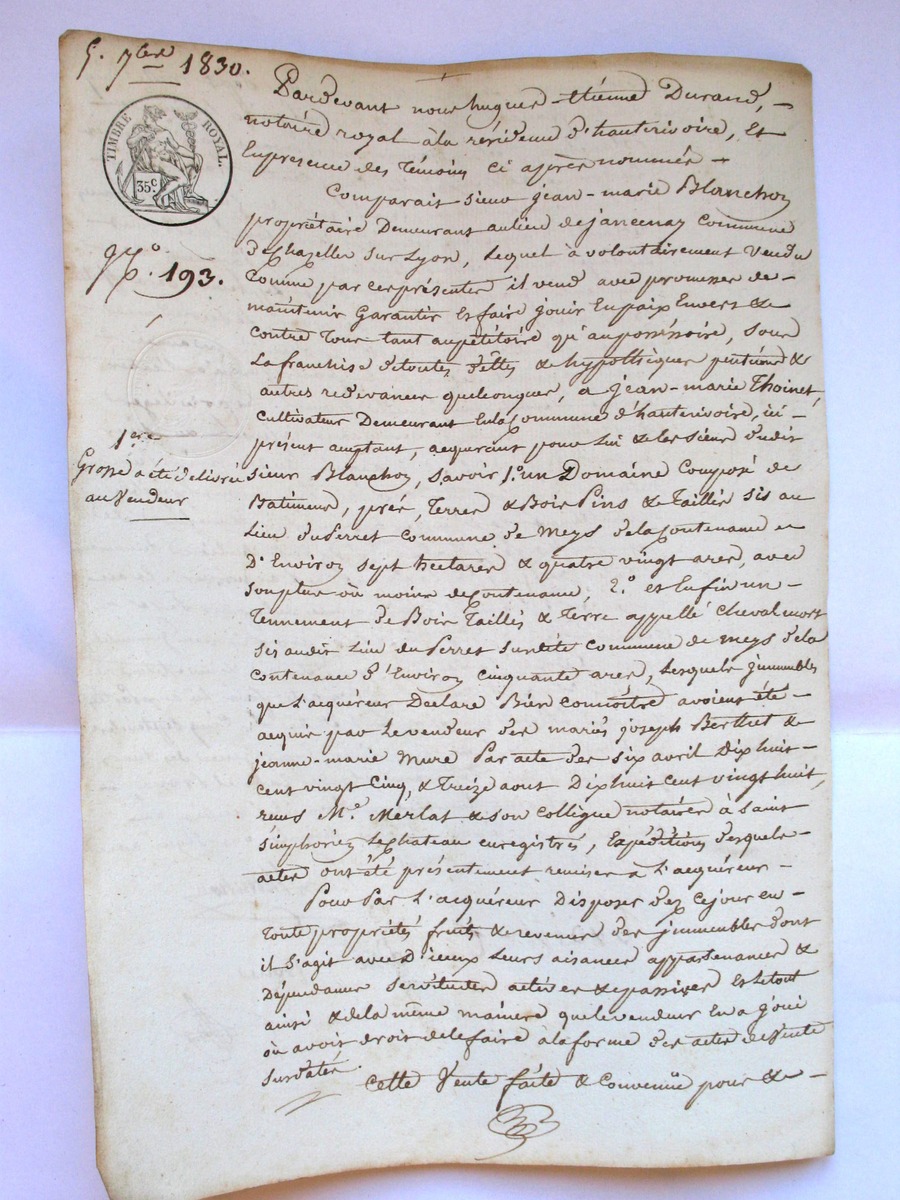 5. 7bre 1830.
TIMBRE ROYAL.
35c
No. 193.
1ere
Grosse a été délivrée
au vendeur
Pardevant nous hugues-étienne Durand,-
notaire royal à la résidence d'hauterivoire, Et
En presence des témoins ci après nommés-
Comparait sieur jean-marie Blanchon
propriétaire Demeurant au lieu de jancenay Commune
de chazelles sur Lyon, Lequel à volontairement Vendu
Comme par ces présentes il vend avec promesse de-
maintenir Garantir Et faire jouir En paix Envers &
contre tous tant au pétitoire qu'au possessoire, sous
La franchise de toutes dettes & hypothèques pensions &
autres redevances quelconques, a jean-marie Thoinet,
Cultivateur Demeurant En la Commune d'hauterivoire, ici-
présent acceptant, acquérant pour Lui & les siens dudit
sieur Blanchon, savoir 1o. un Domaine Composé de
Batiments, prés, Terres & Bois Pins & taillis sis au
Lieu du Perret Commune de Meys de la Contenance
D'Environ sept hectares & quatre vingt ares, avec
son plus où moins de Contenance, 2o. et Enfin un-
Tennement de Bois Taillis & terre appellé cheval mort
sis audit Lieu du Perret susdite Commune de meys de la
Contenance d'Environ Cinquante ares, Lesquels jmmeubles
que L'acquéreur Declare Bien connoitre avoient été-
acquis par Le vendeur des mariés joseph Berthet &
jeanne-marie mure Par actes des six avril Dix huit-
cent vingt Cinq, & treize aout Dix huit cent vingt huit,
reçus Me. Merlat & son collègue notaires à saint
simphorien Le Chateau enregistrés, Expéditions desquels-
actes ont été présentement remises à L'acquéreur-
Pour Par L'acquéreur Disposer dez Cejour en-
toute propriétés fruits & revenus des jmmeubles dont
il s'agit avec D'iceux Leurs aisances appartenances &
Dépendances servitudes actives & passives Et le tout
ainsi & de la même manière que le vendeur En a joui
où avoit droit de le faire à la forme des actes de Vente
susdatés.
Cette Vente faite & Convenue pour &-